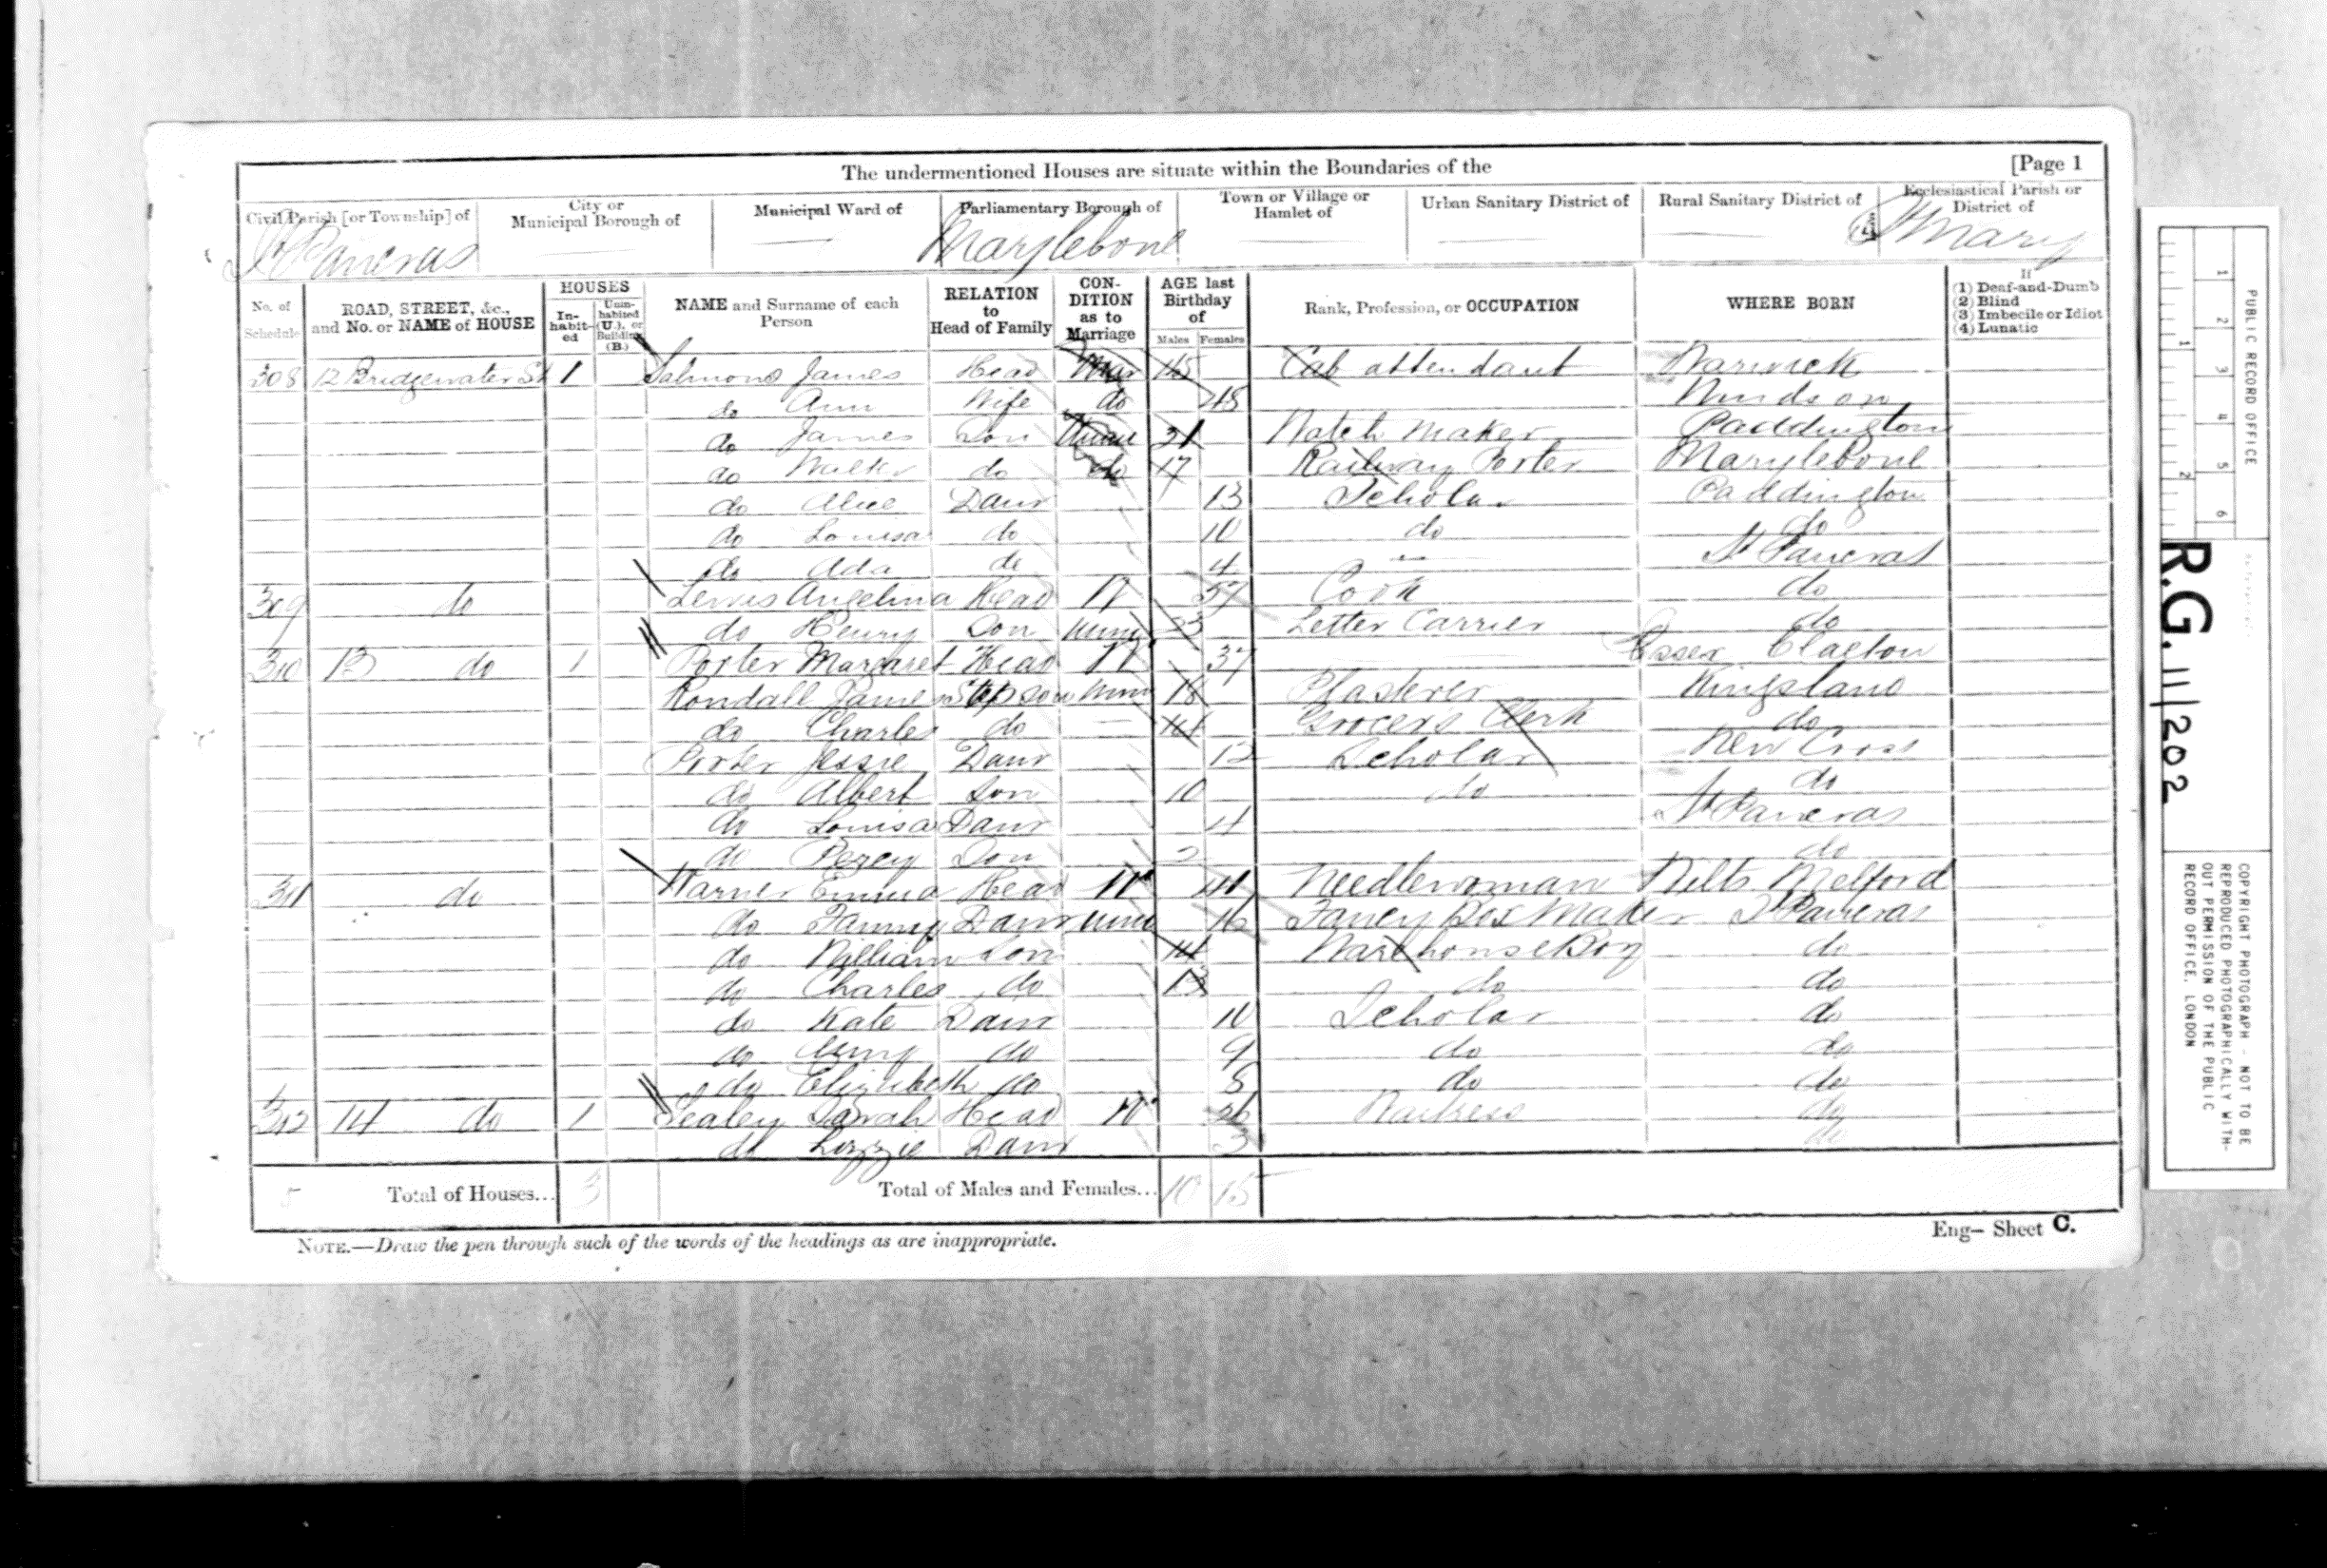 The undermentioned Houses are situate within the Boundaries of the [Page 1
Civil Parish [or Township] of City or Municipal Borough of Municipal Ward of Parliamentary Borough of Town or Village or Hamlet of Urban Sanitary District of Rural Sanitary District of Ecclesiastical Parish or District of
St Pancras Marylebone St Mary
No. of Schedule ROAD, STREET, &c., and No. or NAME of HOUSE HOUSES In-habit-ed Unin-habited (U.), or Building (B.) NAME and Surname of each Person RELATION to Head of Family CON-DITION as to Marriage AGE last Birthday of Males Females Rank, Profession, or OCCUPATION WHERE BORN If (1) Deaf-and-Dumb (2) Blind (3) Imbecile or Idiot (4) Lunatic
308 12 Bridgewater St 1 Salmons James Head Mar 45 Cab attendant Warwick
do Ann Wife do 48 Windson
do James Son 21 Watch Maker Paddington
do Walter do do 17 Railway Porter Marylebone
do Alice Daur 13 Scholar Paddington
do Louisa do 10 do do
do Ada do 4 St Pancras
309 do Lewis Angelina Head W 57 Cook do
do Henry Son Unm 23 Letter Carrier do
310 13 do 1 Porter Margaret Head W 37 Essex Clacton
Rondall James Step son Unm 18 Plasterer Kingsland
do Charles do 14 Grocers Clerk do
Porter Jessie Daur 12 Scholar New Cross
do Albert Son 10 do do
do Louisa Daur 4 St Pancras
do Percy Son 2 do
311 do Warner Emma Head W 41 Needlewoman Wilts Melford
do Fanny Daur Unm 16 Fancy Box Maker St Pancras
do William Son 14 Warehouse Boy do
do Charles do 13 do do
do Kate Daur 10 Scholar do
do Amy do 9 do do
do Elizabeth do 5 do do
312 14 do 1 Sealey Sarah Head W 26 Waitress do
do Lizzie Daur 3 do
5 Total of Houses... 3 Total of Males and Females... 10 15
NOTE.—Draw the pen through such of the words of the headings as are inappropriate.
Eng— Sheet C.
PUBLIC RECORD OFFICE
1 2 3 4 5 6
1 2
R.G. 11/202
COPYRIGHT PHOTOGRAPH - NOT TO BE
REPRODUCED PHOTOGRAPHICALLY WITH-
OUT PERMISSION OF THE PUBLIC
RECORD OFFICE, LONDON